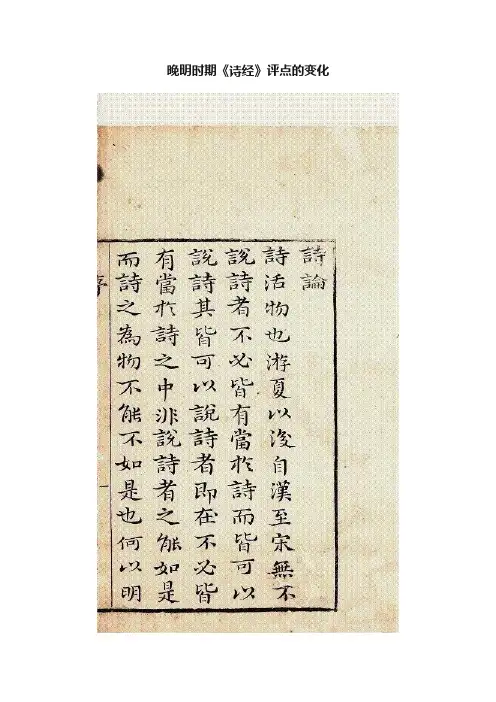 晚明时期《诗经》评点的变化
詩論
詩活物也游夏以後自漢至宋無不
說詩者不必皆有當於詩而皆可以
說詩其皆可以說詩者即在不必皆
有當於詩之中非說詩者之能如是
而詩之為物不能不如是也何以明